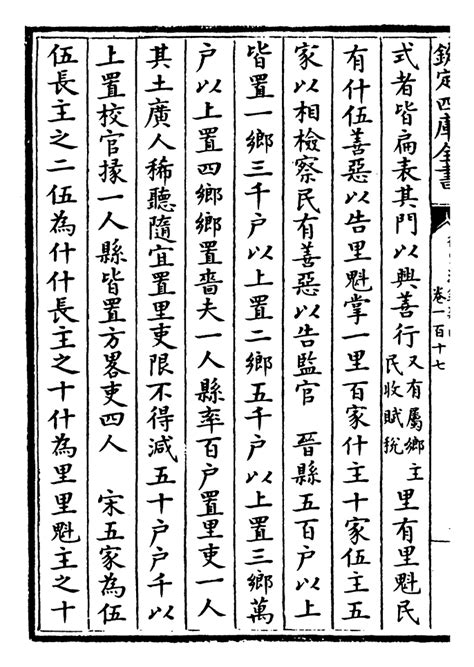 欽定四庫全書
卷一百十七
式者皆扁表其門以興善行又有屬鄉主民收賦税里有里魁民
有什伍善惡以告里魁掌一里百家什主十家伍主五
家以相檢察民有善惡以告監官　晉縣五百户以上
皆置一鄉三千户以上置二鄉五千户以上置三鄉萬
户以上置四鄉鄉置嗇夫一人縣率百户置里吏一人
其土廣人稀聽隨宜置里吏限不得減五十户户千以
上置校官掾一人縣皆置方畧吏四人　宋五家為伍
伍長主之二伍為什什長主之十什為里里魁主之十